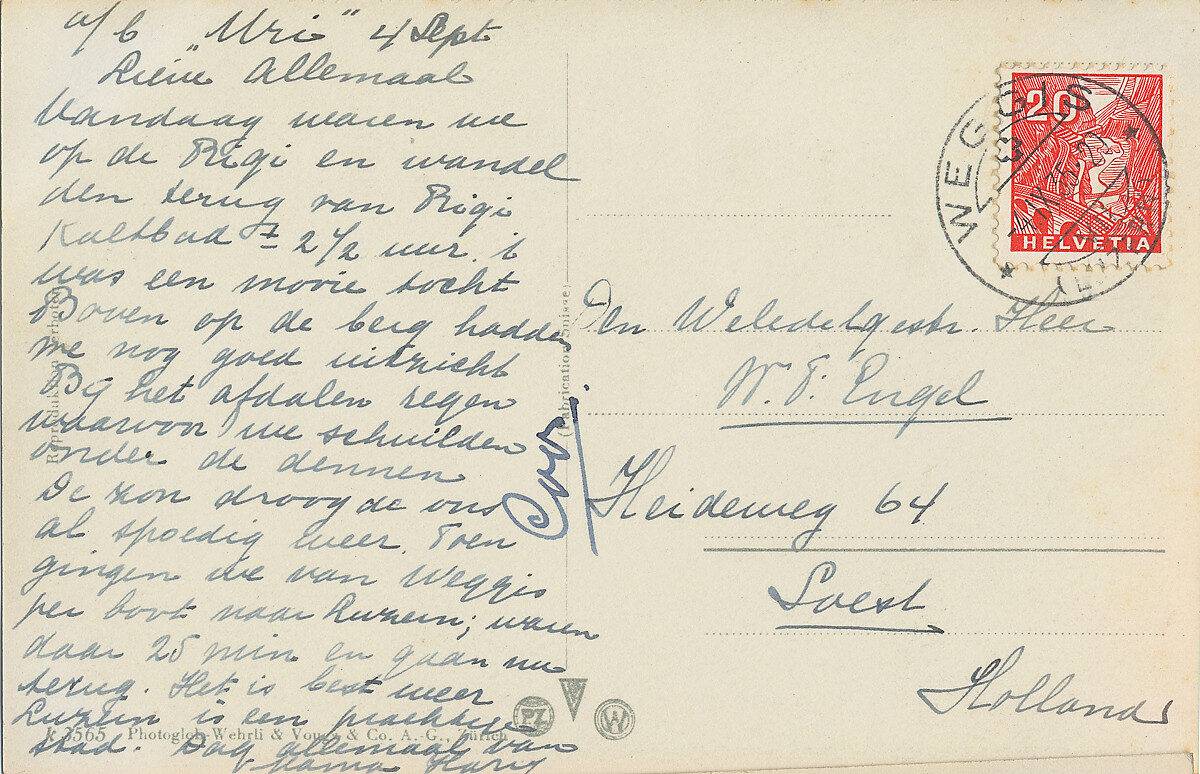 a/b "Uri" 4 Sept
Lieve Allemaal
Vandaag waren we
op de Rigi en wandel
den terug van Rigi
Kaltbad ± 2½ uur. 't
was een mooie tocht
Boven op de berg hadden
we nog goed uitzicht
Bij het afdalen regen
waarvoor we schuilden
onder de dennen
De zon droogde ons
al spoedig weer. Toen
gingen we van Weggis
per boot naar Luzern; waren
daar 25 min en gaan nu
terug. Het is best weer
Luzern is een prachtige
stad. Dag allemaal van
Mama Harry
Cor
HELVETIA
20
WEGGIS
(LUZERN)
Den Weledelgestr. Heer
W. F. Engel
Heideweg 64
Soest
Holland
(Fabrication Suisse)
Reproduktion verboten
k 3565 Photoglob-Wehrli & Vouga & Co. A.-G., Zürich
PZ
W